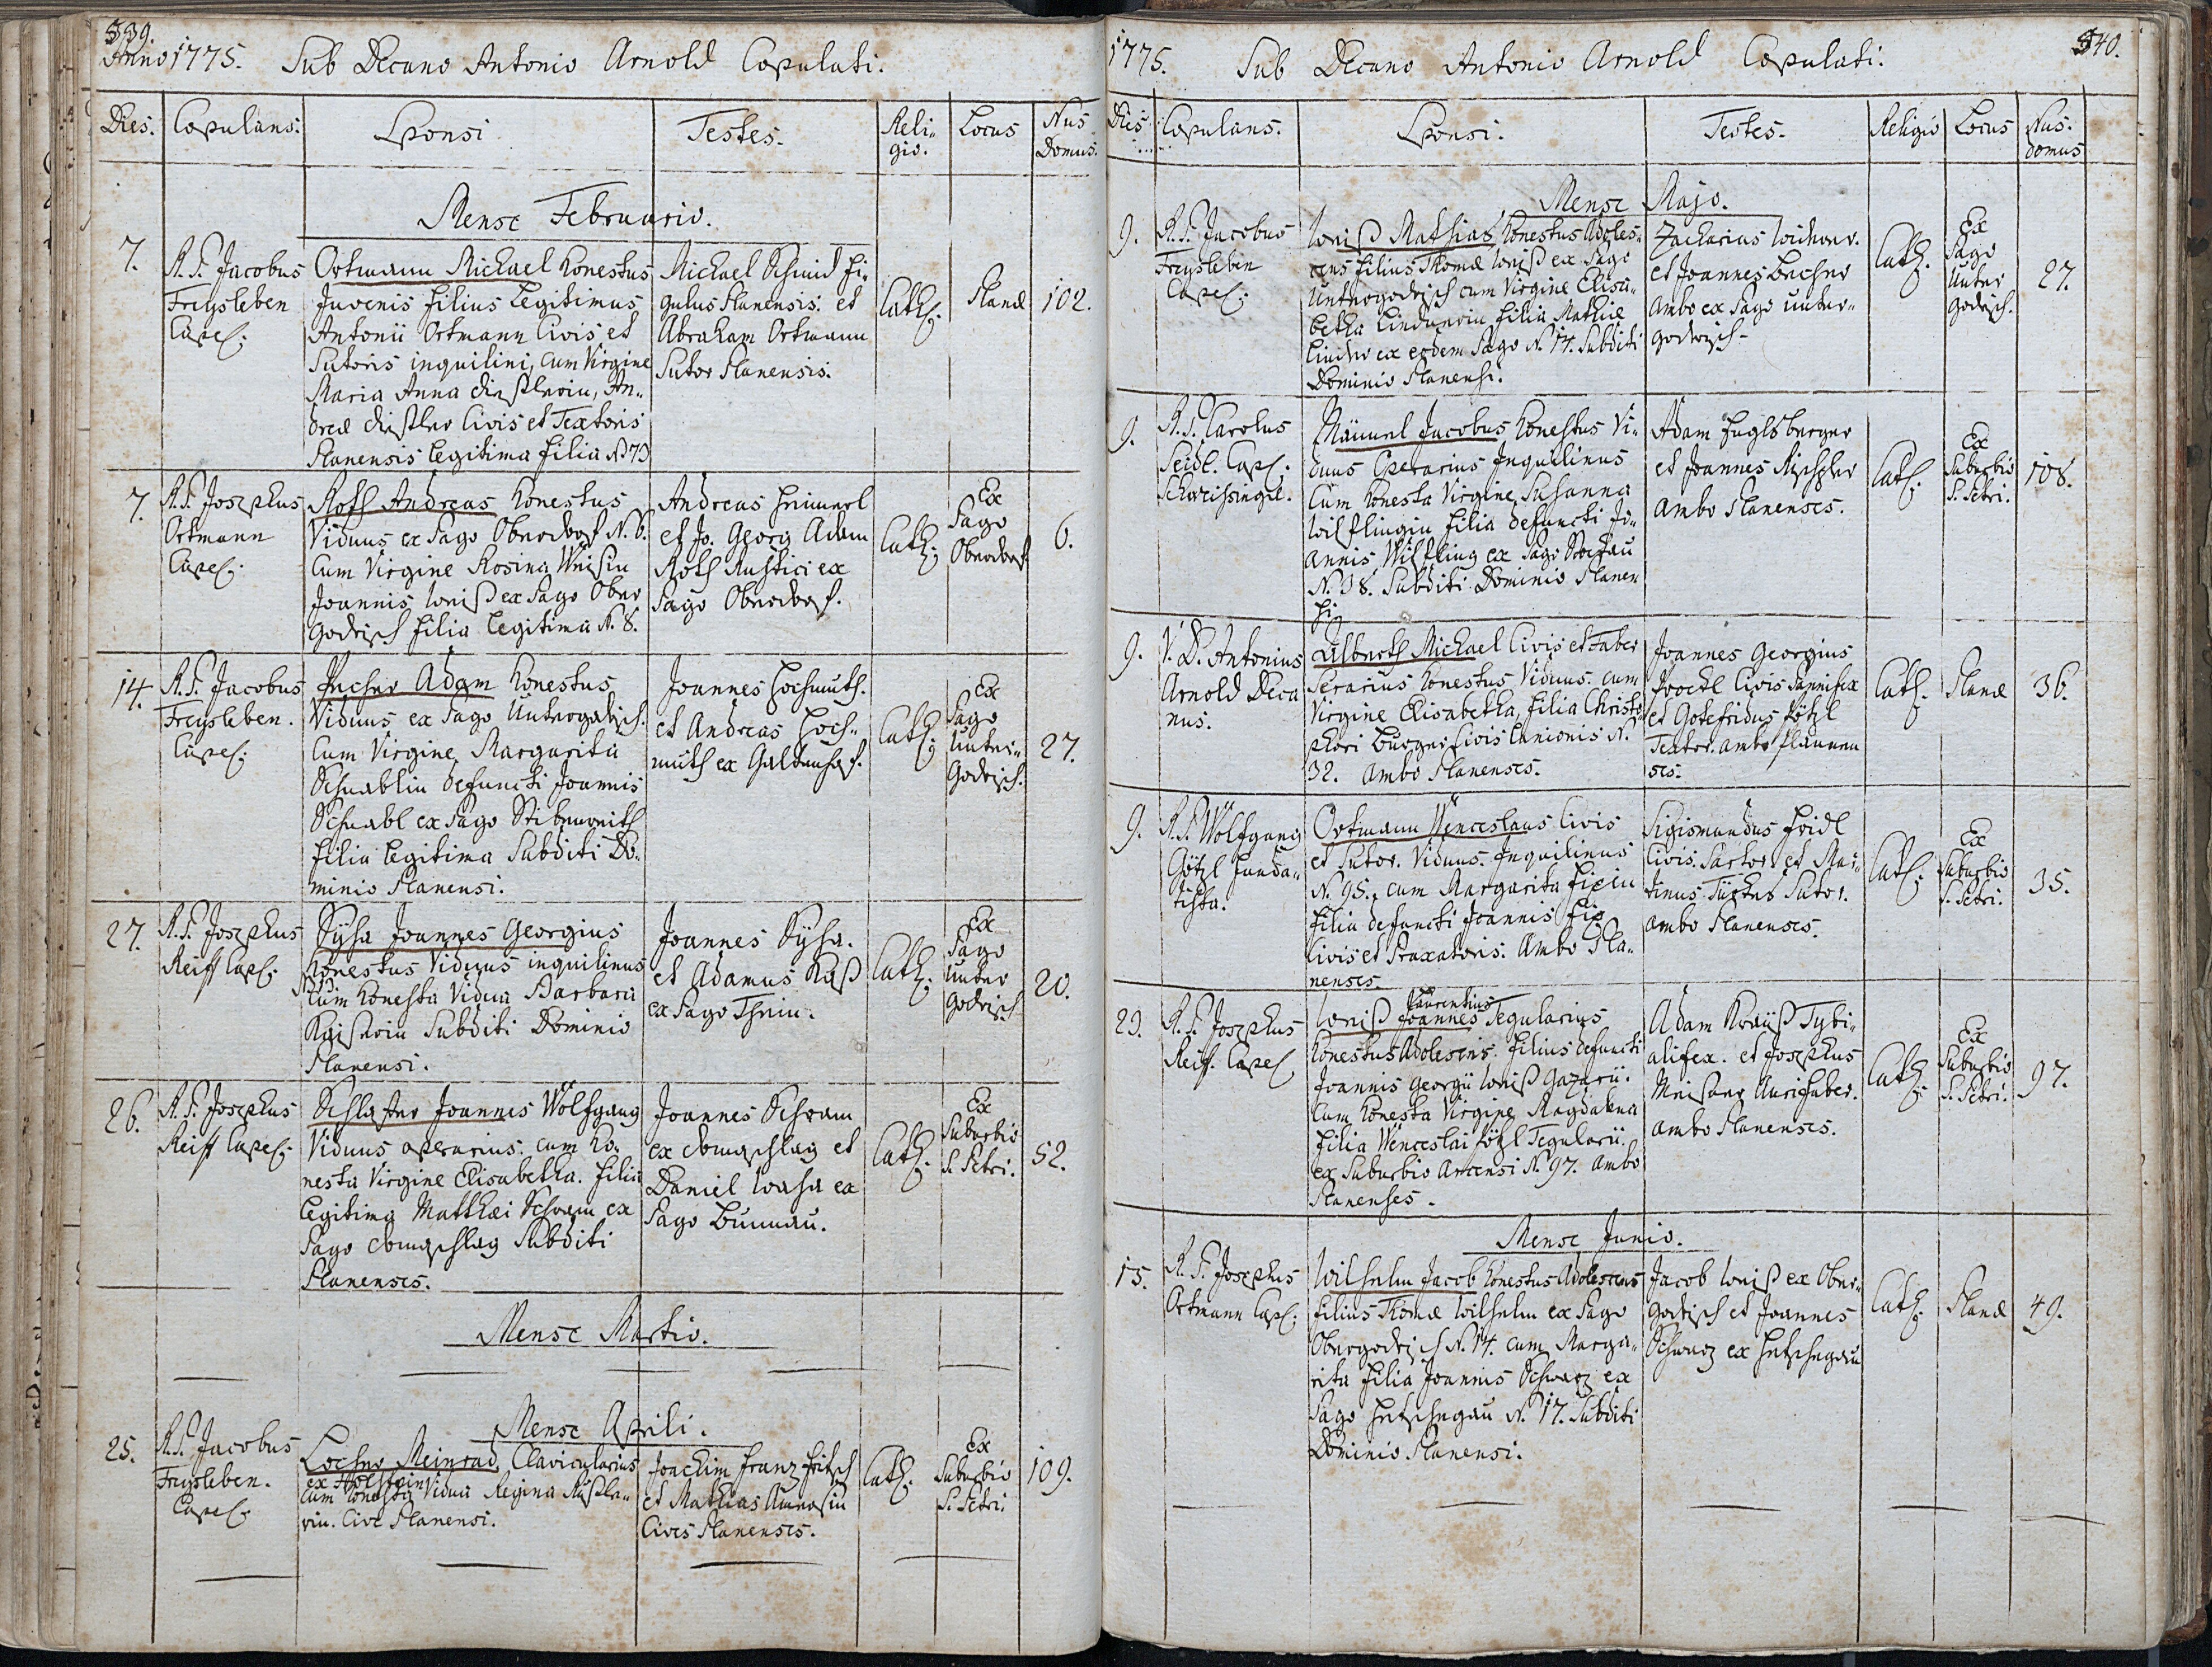 339.
Anno 1775. Sub Decano Antonio Arnold Copulati.
Dies. Copulans. Sponsi Testes. Reli- Locus Nus
gio. Domus.
Mense Februario.
7. R. P. Jacobus
Freysleben
Capel.
Ortmann Michael honestus
Juvenis filius Legitimus
Antonii Ortmann Civis et
Sutoris inquilini, cum Virgine
Maria Anna
dreæ Civis et Textoris
Planensis legitima filia No 73
Michael Schmid fi-
gulus Planensis. et
Abraham Ortmann
Sutor Planensis.
Cath.
Planæ
102.
7. R. P. Josephus
Ortmann
Capel.
Roth Andreas honestus
Viduus ex Pago Oberdorf N. 6.
Cum Virgine Rosina Weisin
Joannis Weiß ex Pago Ober
Godrisch filia legitima N. 8.
Andreas Heimerl
et Jo. Georg Adam
Roth Rustici ex
Pago Oberdorf.
Cath.
Ex
Pago
Oberdorf
6.
14. R. P. Jacobus
Freysleben.
Capel.
Adam honestus
Viduus ex Pago Untergodrisch.
Cum Virgine Margarita
Schnablin defuncti Joannis
Schnabl ex Pago
filia legitima Subditi Do-
minio Planensi.
Joannes Hochmuth.
et Andreas Hoch-
muth ex Galtenhof.
Cath.
Ex
Pago
Unter-
Godrisch.
27.
27. R. P. Josephus
Reiff Capel.
Joannes Georgius
honestus Viduus inquilinus
Cum honesta Vidua Barbara
Subditi Dominio
Planensi.
Joannes
et Adamus
ex Pago Thein.
Cath.
Ex
Pago
Unter
Godrisch
20.
26. R. P. Josephus
Reiff Capel.
Joannes Wolfgang
Viduus operarius. cum ho-
nesta Virgine Elisabetha. filia
legitima Matthæi Schram ex
Pago Subditi
Planenses.
Joannes Schram
ex et
Daniel ex
Pago
Cath.
Ex
Suburbio
S. Petri.
52.
Mense Martio.
Mense Aprili.
25. R. P. Jacobus
Freysleben.
Capel.
Lochner Meinrad, Clavicularius
ex
cum honesta Vidua Regina
Cive Planensi.
Joachim Franz Fritsch
et Mathias
Cives Planenses.
Cath.
Ex
Suburbio
S. Petri.
109.
1775. Sub Decano Antonio Arnold Copulati.
340.
Dies Copulans. Sponsi. Testes. Religio Locus Nus.
domus
Mense Majo.
9. R. P. Jacobus
Freysleben
Capel.
Weiß Mathias, honestus Adoles-
cens filius Thomæ Weiß ex Pago
Untergodrisch cum Virgine Elisa-
betha Lindnerin filia Mathiæ
Lindner ex eodem Pago N. 14. Subditi
Dominio Planensi.
Zacharias
et Joannes Lechner
Ambo ex Pago unter-
godrisch.
Cath.
Ex
Pago
Unter
godrisch.
27.
9. R. P. Carolus
Seidl. Capl.
Jacobus honestus Vi-
duus Operarius Inquilinus
Cum honesta Virgine Susanna
Wilflingin filia defuncti Jo-
annis Wilfling ex Pago
N. 38. Subditi Dominio Planen
si
Adam
et Joannes
Ambo Planenses.
Cath.
Ex
Suburbio
S. Petri.
108.
9. V. D. Antonius
Arnold Deca
nus.
Ulberth Michael Civis et Faber
Serarius honestus Viduus cum
Virgine Elisabetha, filia Christo-
phori Burger Civis Lanionis N.
32. Ambo Planenses.
Joannes Georgius
Civis Pannifex
et Gotefridus
Textor. ambo Planen
ses.
Cath.
Planæ
36.
9. R. P. Wolfgang
Götzl Funda-
tista.
Ortmann Wenceslaus Civis
et Sutor. Viduus. Inquilinus
N. 95., cum Margarita
filia defuncti Joannis
Civis et Braxatoris. Ambo Pla-
nenses.
Sigismundus
Civis. Sartor et Mar-
tinus Sutor.
ambo Planenses.
Cath.
Ex
Suburbio
S. Petri.
35.
29. R. P. Josephus
Reif. Capel.
Laurentius
Weiß Joannes Tegularius
honestus Adolescens. filius defuncti
Joannis Georgii Weiß
Cum honesta Virgine Magdalena
filia Wenceslai Tegularii.
ex Suburbio Arcensi N. 97. Ambo
Planenses.
Adam Krauß Tybi-
alifex. et Josephus
Meißner Aurifaber.
ambo Planenses.
Cath.
Ex
Suburbio
S. Petri.
97.
Mense Junio.
15. R. P. Josephus
Ortmann Capl.
Wilhelm Jacob honestus Adolescens
filius Thomæ Wilhelm ex Pago
Obergodrisch N. 14. cum Marga-
rita filia Joannis Schwarz ex
Pago N. 17. Subditi
Dominio Planensi.
Jacob Weiß ex Ober-
godrisch et Joannes
Schwarz ex
Cath.
Planæ
49.